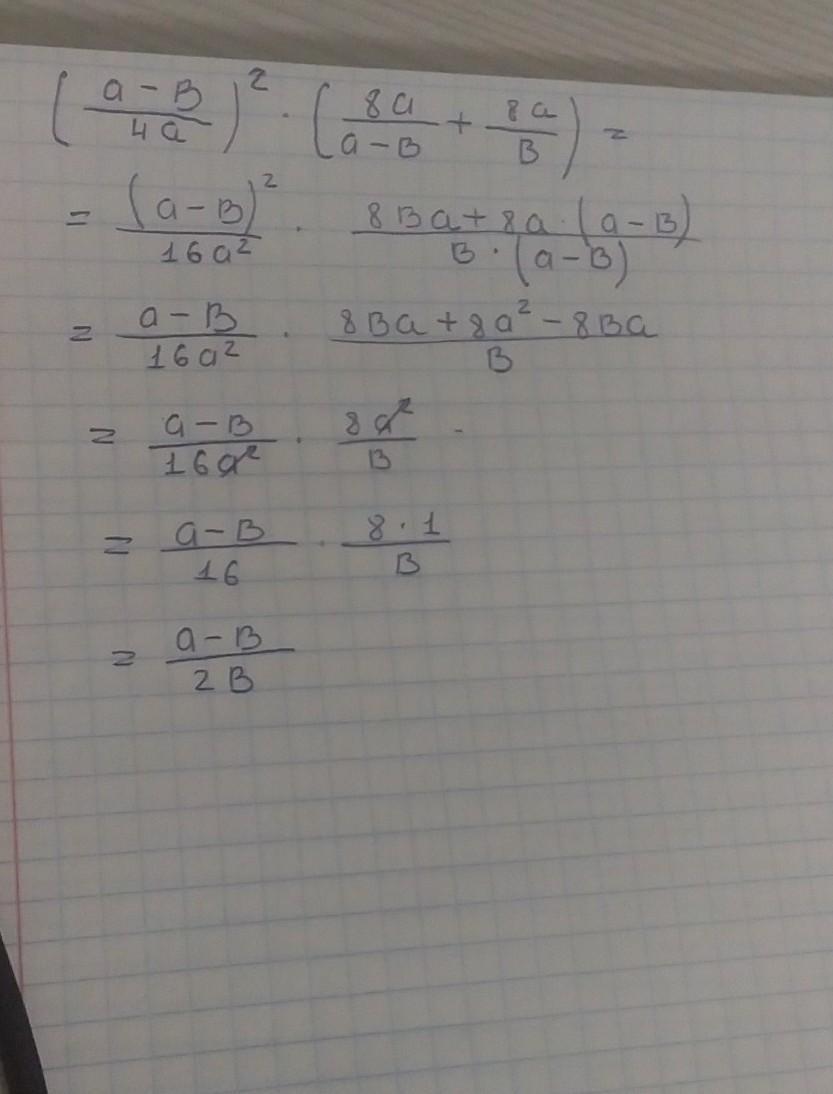 (a-B/4a)² · (8a/a-B + 8a/B) =
= (a-B)²/16a² · 8Ba+8a·(a-B)/B·(a-B)
= a-B/16a² · 8Ba+8a²-8Ba/B
= a-B/16a² · 8a²/B -
= a-B/16 · 8·1/B
= a-B/2B